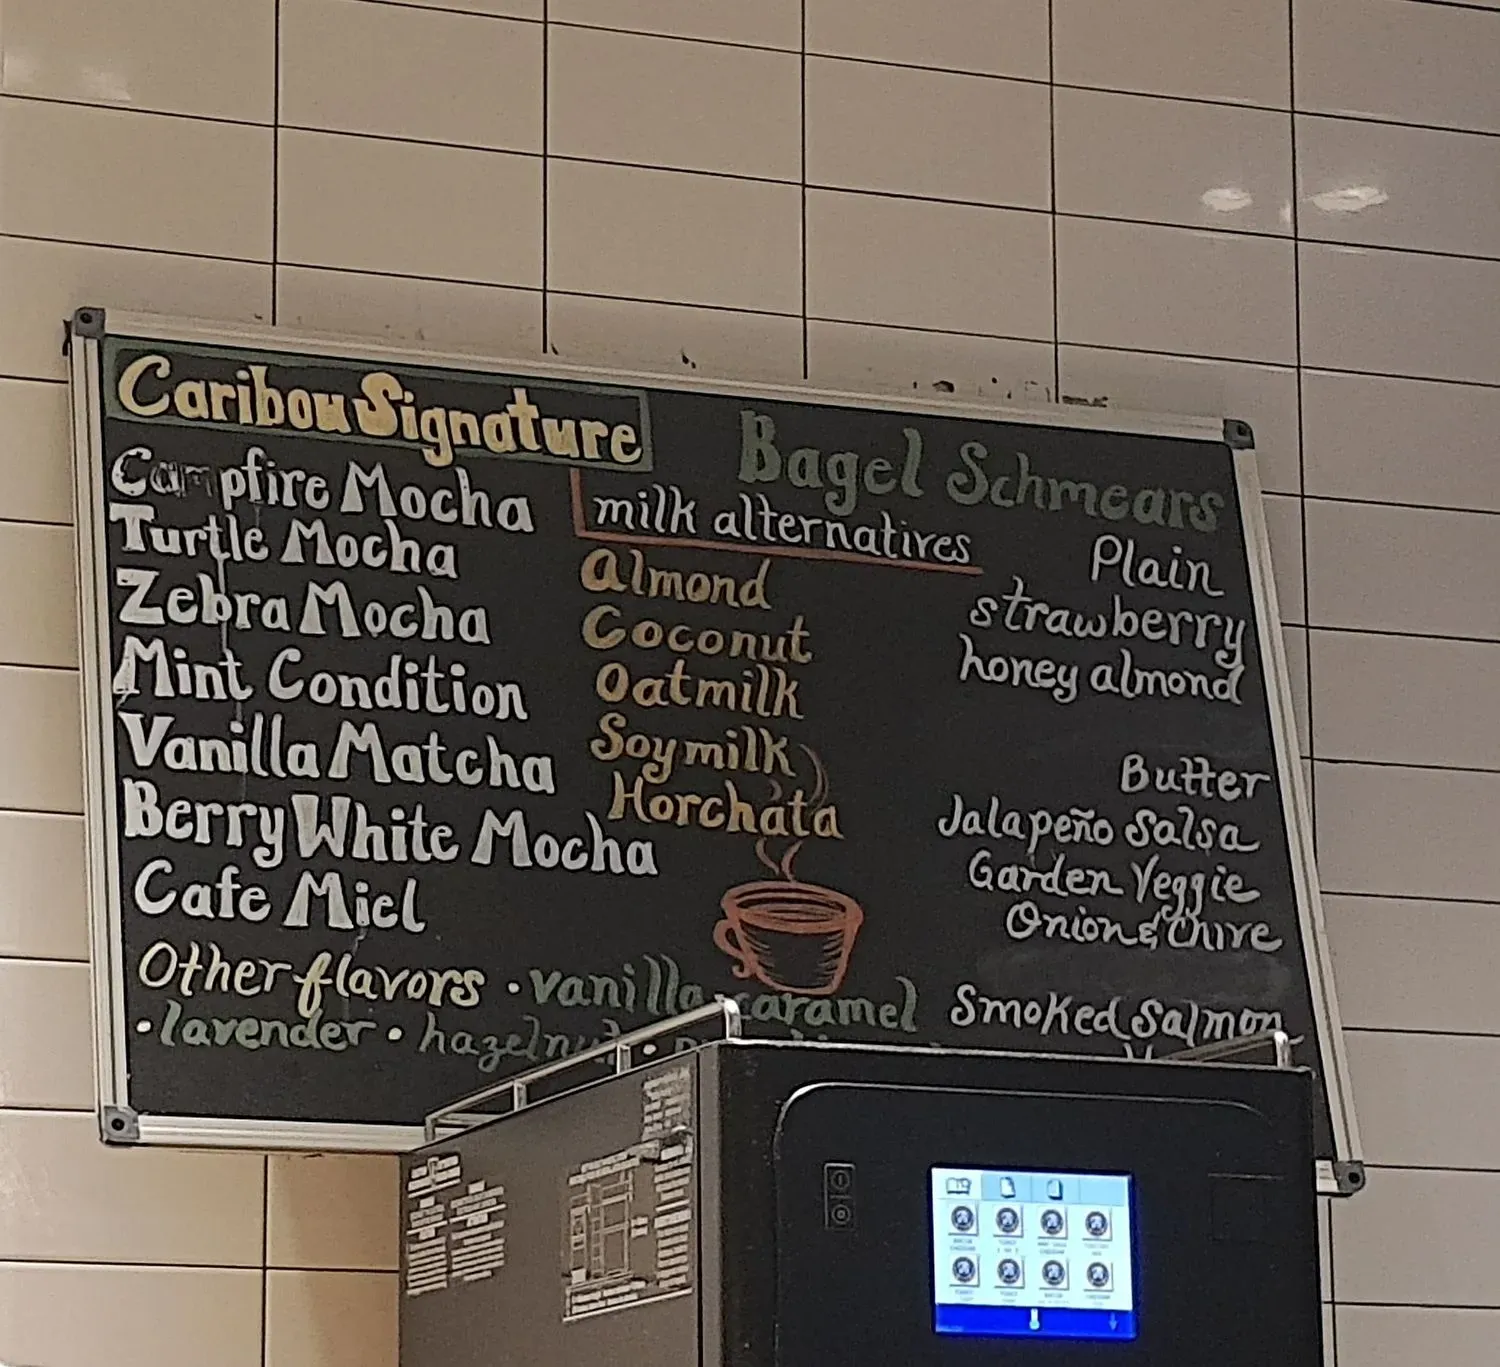 Caribou Signature
Campfire Mocha
Turtle Mocha
Zebra Mocha
Mint Condition
Vanilla Matcha
Berry White Mocha
Cafe Miel
milk alternatives
Almond
Coconut
Oatmilk
Soymilk
Horchata
Bagel Schmears
Plain
strawberry
honey almond
Butter
Jalapeño Salsa
Garden Veggie
Onion & Chive
Smoked Salmon
Other flavors • vanilla caramel
• lavender • hazelnut •